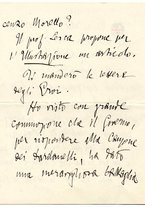 cenzo Morello?
Il prof. Lesca propone per
l'Illustrazione un articolo.
Vi manderò le lettere
degli Eroi.
Ho visto con grande
commozione che il Governo,
per rispondere alla Canzone
dei Dardanelli, ha dato
una meravigliosa battaglia